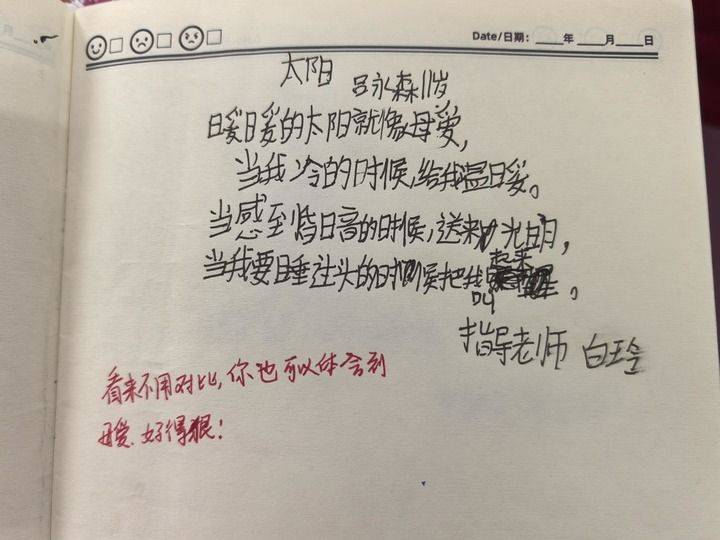 Date/日期: ____年 ____月____日
太阳 吕永森11岁
暖暖的太阳就像母爱,
当我冷的时候,给我温暖。
当感到昏暗的时候,送来光明,
当我要睡过头的时候把我叫起来。
指导老师 白玉玲
看来不用对比,你也可以体会到
母爱.好得狠!